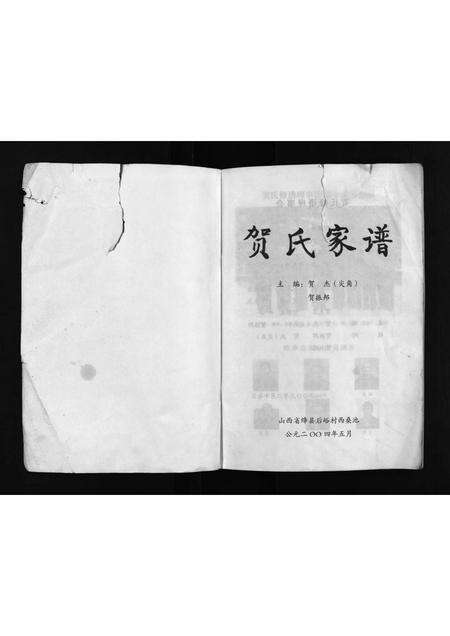 贺氏家谱
主 编：贺 杰（尖角）
贺振邦
山西省绛县后峪村西桑池
公元二〇〇四年五月